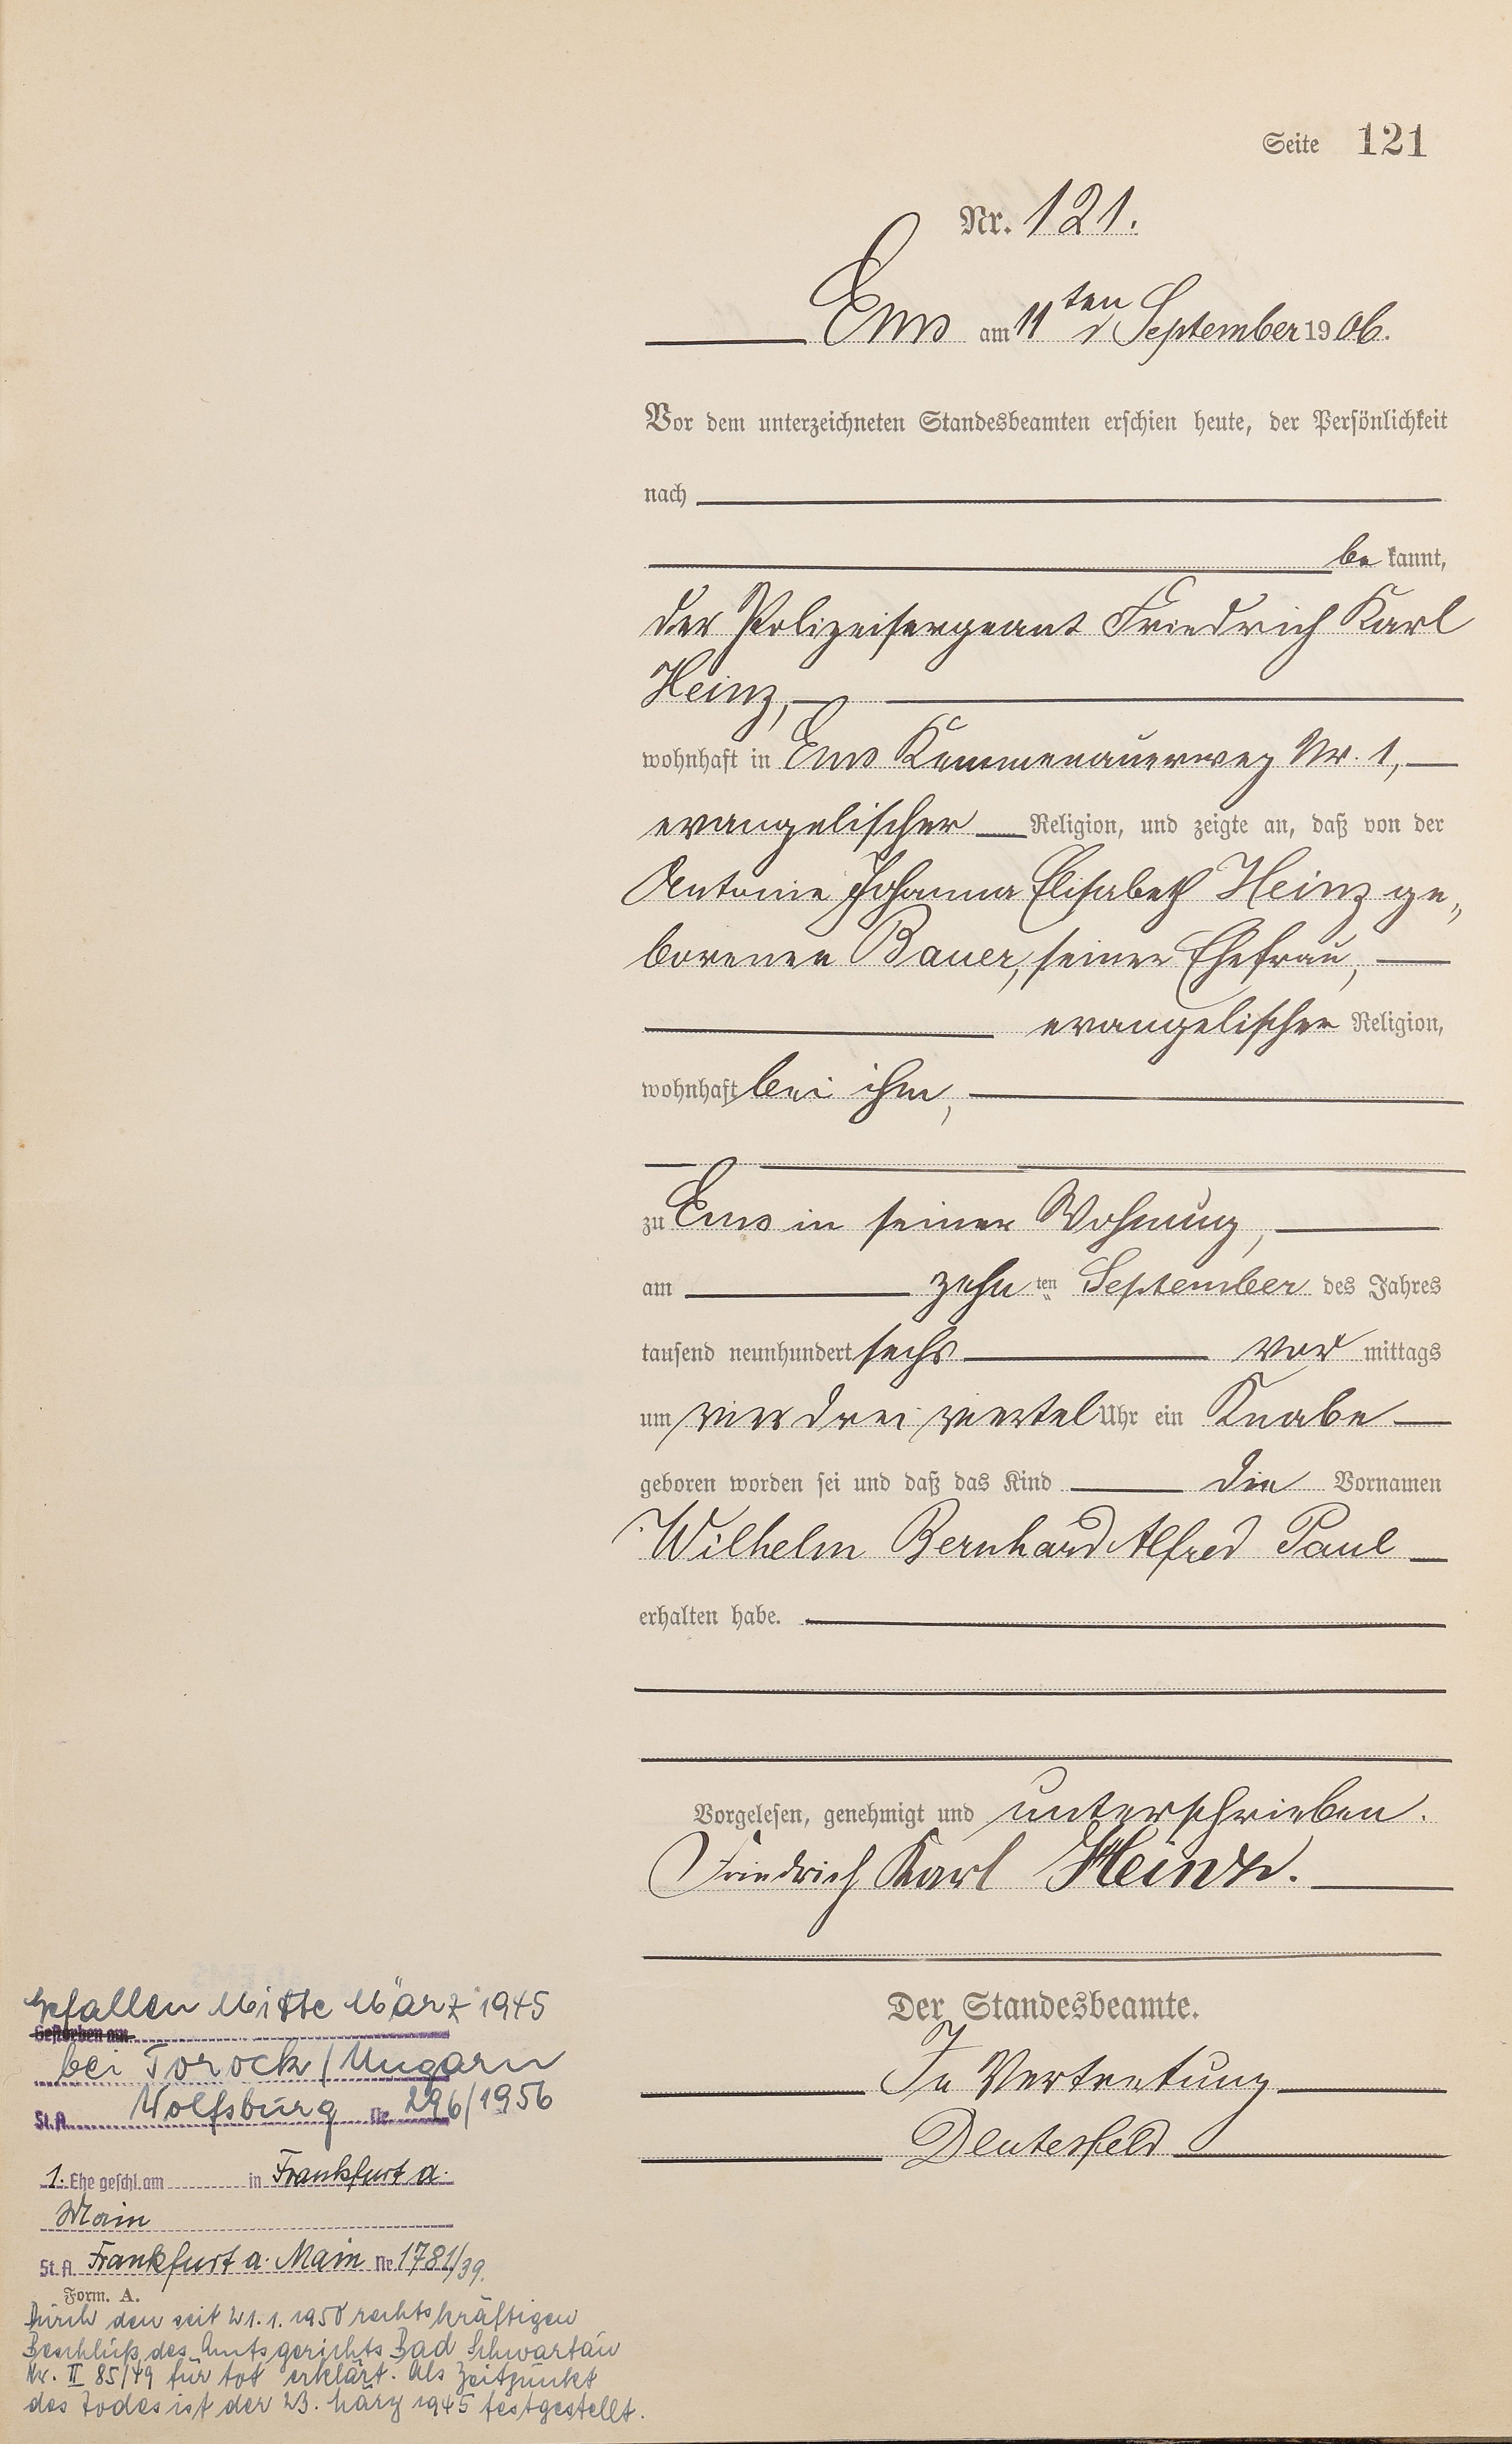 Seite 121
Nr. 121.
Ems am 11ten September 1906.
Vor dem unterzeichneten Standesbeamten erschien heute, der Persönlichkeit
nach
be kannt,
der Polizeisergeant Friedrich Karl
Heinz,
wohnhaft in Ems Kemmenauerweg Nr. 1,
evangelischer Religion, und zeigte an, daß von der
Antonie Johanna Elisabeth Heinz ge„
borenen Bauer, seiner Ehefrau,
evangelischer Religion,
wohnhaft bei ihm,
zu Ems in seiner Wohnung,
am zehn ten September des Jahres
tausend neunhundert sechs vor mittags
um vier drei viertel Uhr ein Knabe
geboren worden sei und daß das Kind die Vornamen
Wilhelm Bernhard Alfred Paul
erhalten habe.
Vorgelesen, genehmigt und unterschrieben.
Friedrich Karl Heinz.
Der Standesbeamte.
In Vertretung
Gefallen Mitte März 1945
Gestorben am
bei Torock / Ungarn
St. A. Wolfsburg Nr. 296/1956
1. Ehe geschl. am in Frankfurt a.
Main
St. A. Frankfurt a. Main Nr. 1781/39.
Form. A.
Durch den seit 21.1.1950 rechtskräftigen
Beschluß des Amtsgerichts Bad Schwartau
Nr. II 85/49 für tot erklärt. Als Zeitpunkt
des Todes ist der 23. März 1945 festgestellt.